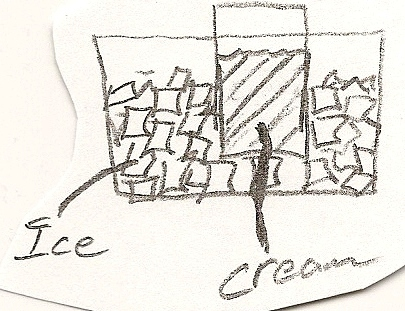 Ice
cream